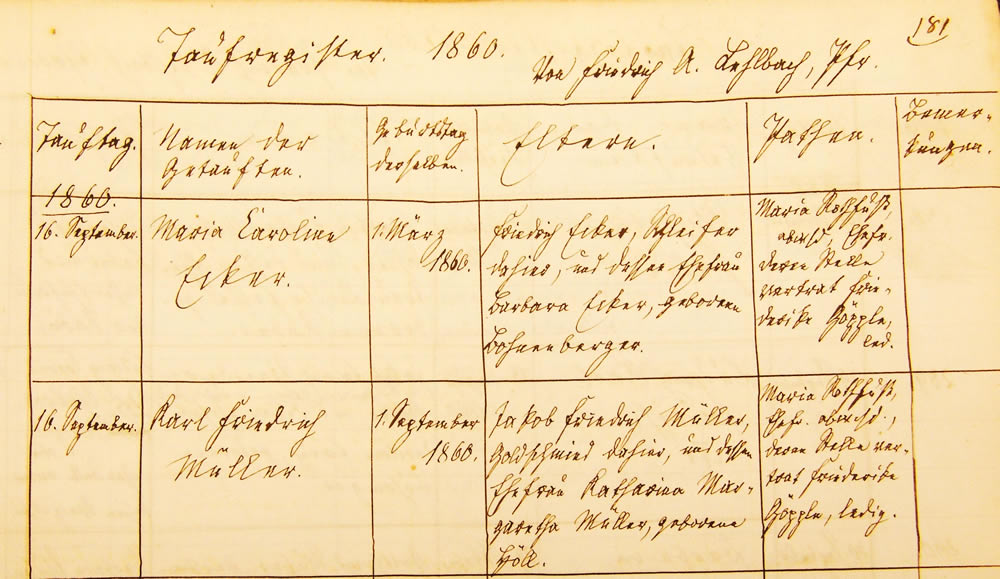 181
Taufregister. 1860. Von Friedrich A. Lehlbach, Pfr.
Tauftag.
Namen der
Getauften.
Geburtstag
derselben.
Eltern.
Pathen.
Bemer-
kungen.
1860.
16. September.
Maria Caroline
Ecker.
1. März
1860.
Friedrich Ecker, Schleifer
dahier, und dessen Ehefrau
Barbara Ecker, geborenen
Bohnenberger.
Maria Rothfuß,
Ehefr.
deren Stelle
vertrat Frie-
derike Göpple,
led.
16. September.
Karl Friedrich
Müller.
1. September
1860.
Jakob Friedrich Müller,
Goldschmied dahier, und dessen
Ehefrau Katharina Mar-
garetha Müller, geborene
Höll.
Maria Rothfuß,
Ehefr.
deren Stelle ver-
trat Friederike
Göpple, ledig.